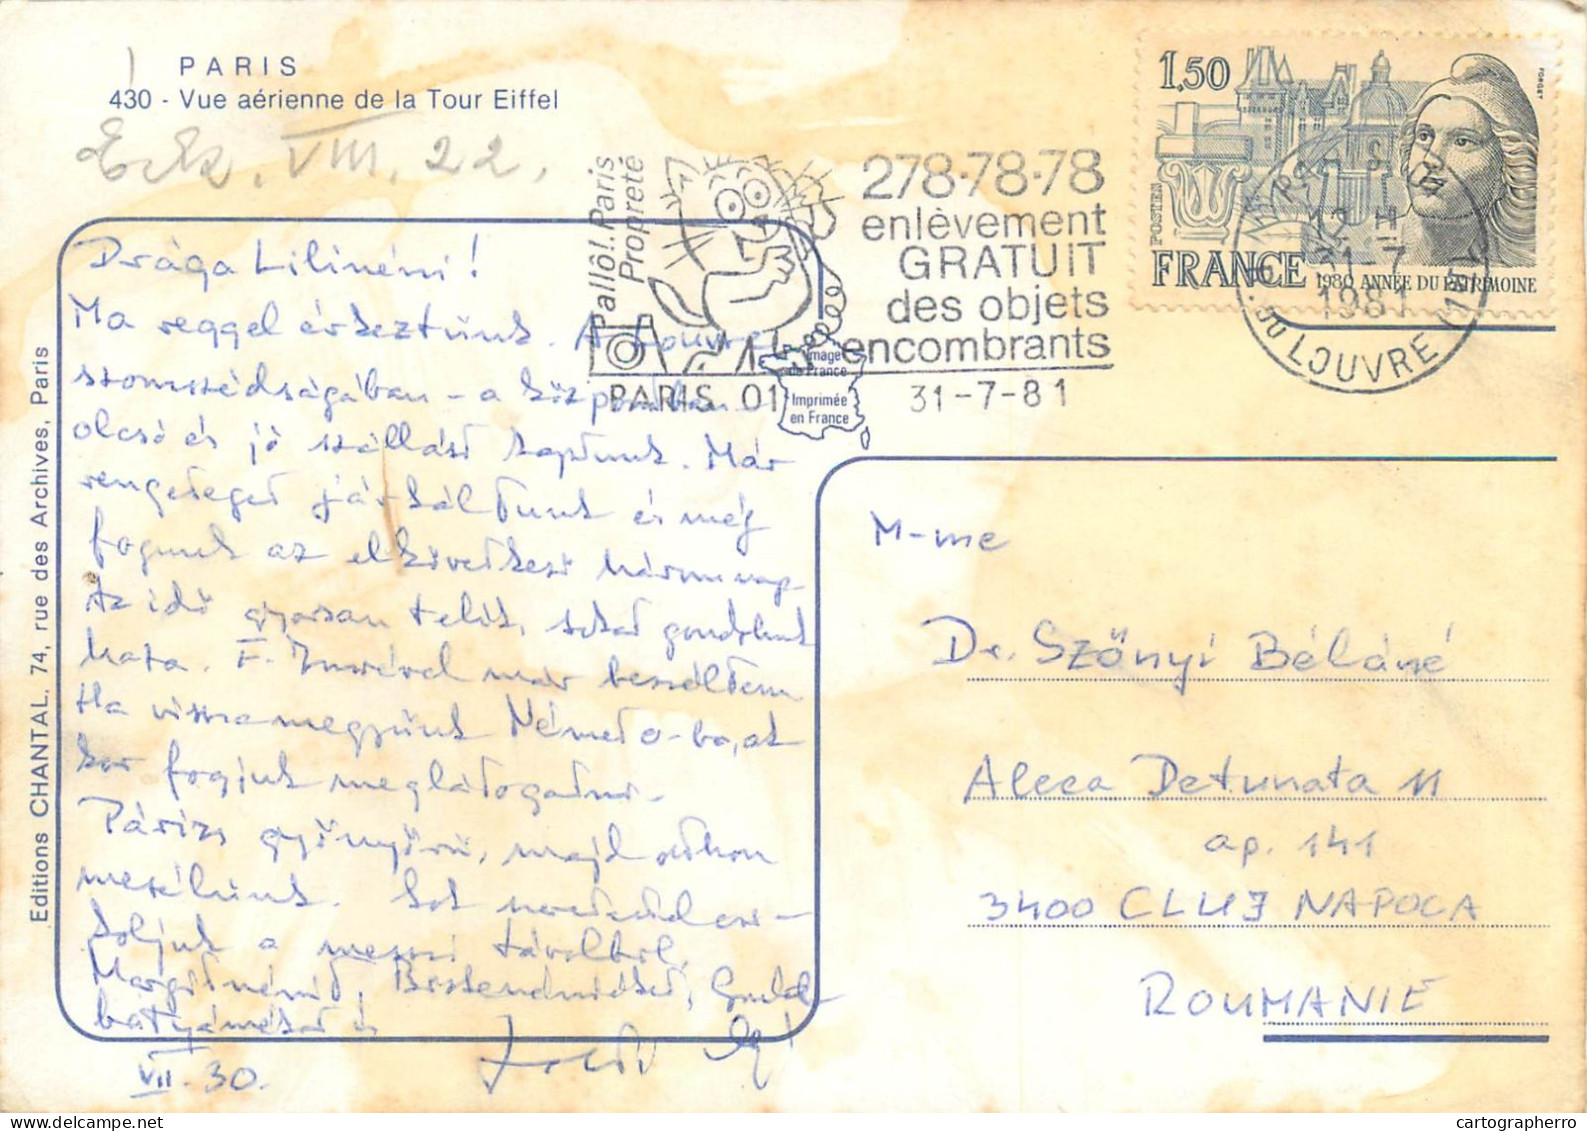 PARIS
430 - Vue aérienne de la Tour Eiffel
Érk. VIII. 22.
Editions CHANTAL, 74, rue des Archives, Paris
Drága Lilinéni!
Ma reggel érkeztünk. A Louvre
szomszédságában - a központban -
olcsó és jó szállást kaptunk. Már
rengeteget járkáltunk és még
fogunk az elkövetkező három nap.
Az idő gyorsan telik, sokat gondolunk
haza. F. Zsuzsával már beszéltem
Ha visszamegyünk Németo-ba, ak
kor fogjuk meglátogatni.
Párizs gyönyörű, majd otthon
mesélünk. Sok szeretettel cső-
koljuk a messzi távolból.
Margitnénit, Bözsenéniéket,
batyámékat is
VII. 30.
Pallô!. Paris
Propreté
278·78·78
enlèvement
GRATUIT
des objets
encombrants
PARIS 01
31-7-81
Image
de France
Imprimée
en France
1,50
FORGET
POSTES
FRANCE 1980 ANNÉE DU PATRIMOINE
12 H
31-7
1981
R. DU LOUVRE (1er)
M-me
Dr. Szőnyi Béláné
Aleea Detunata 11
ap. 141
3400 CLUJ NAPOCA
ROUMANIE
cartographerro